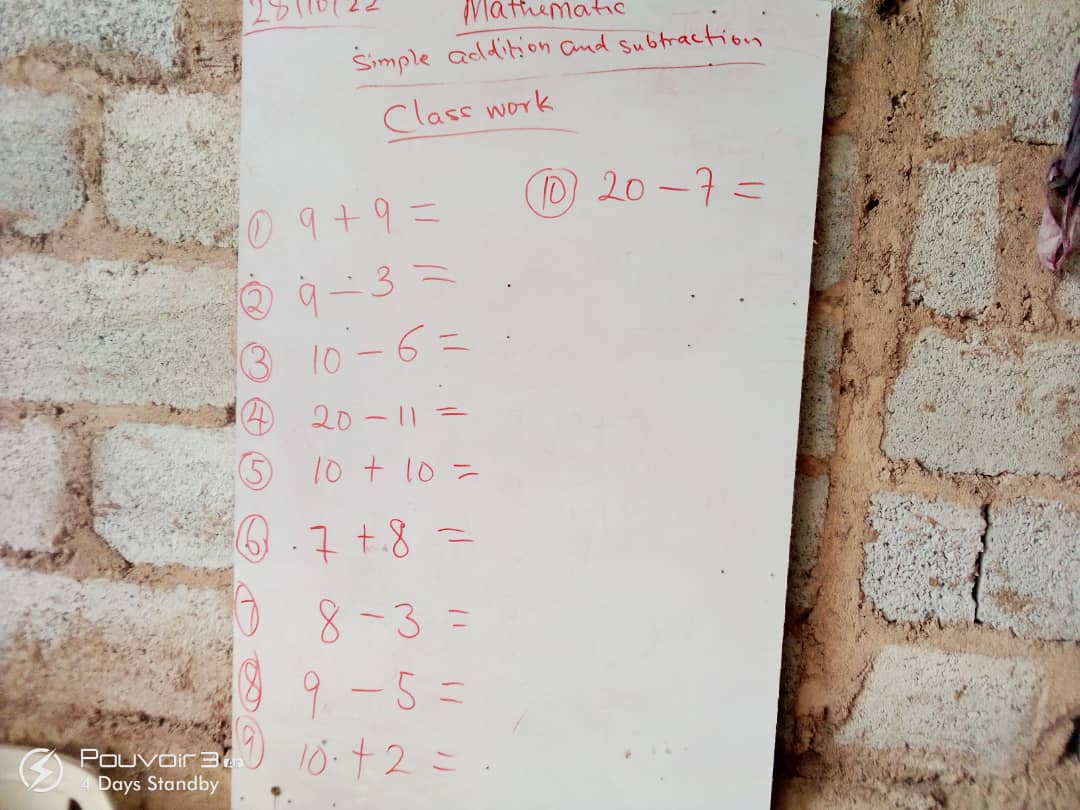 28/10/22
Mathematic
Simple addition and subtraction
Class work
① 9 + 9 =
② 9 - 3 =
③ 10 - 6 =
④ 20 - 11 =
⑤ 10 + 10 =
⑥ 7 + 8 =
⑦ 8 - 3 =
⑧ 9 - 5 =
⑨ 10 + 2 =
⑩ 20 - 7 =
Pouvoir 3
4 Days Standby